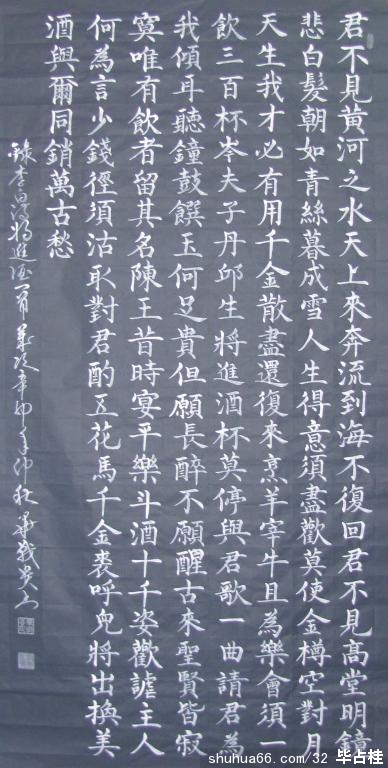 君不見黃河之水天上來奔流到海不復回君不見高堂明鏡
悲白髮朝如青絲暮成雪人生得意須盡歡莫使金樽空對月
天生我才必有用千金散盡還復來烹羊宰牛且為樂會須一
飲三百杯岑夫子丹邱生將進酒杯莫停與君歌一曲請君為
我傾耳聽鐘鼓饌玉何足貴但願長醉不願醒古來聖賢皆寂
寞唯有飲者留其名陳王昔時宴平樂斗酒十千姿歡謔主人
何為言少錢徑須沽取對君酌五花馬千金裘呼兒將出換美
酒與爾同銷萬古愁
錄李白將進酒一首歲次辛卯年仲秋
shuhua66.com/32 毕占桂